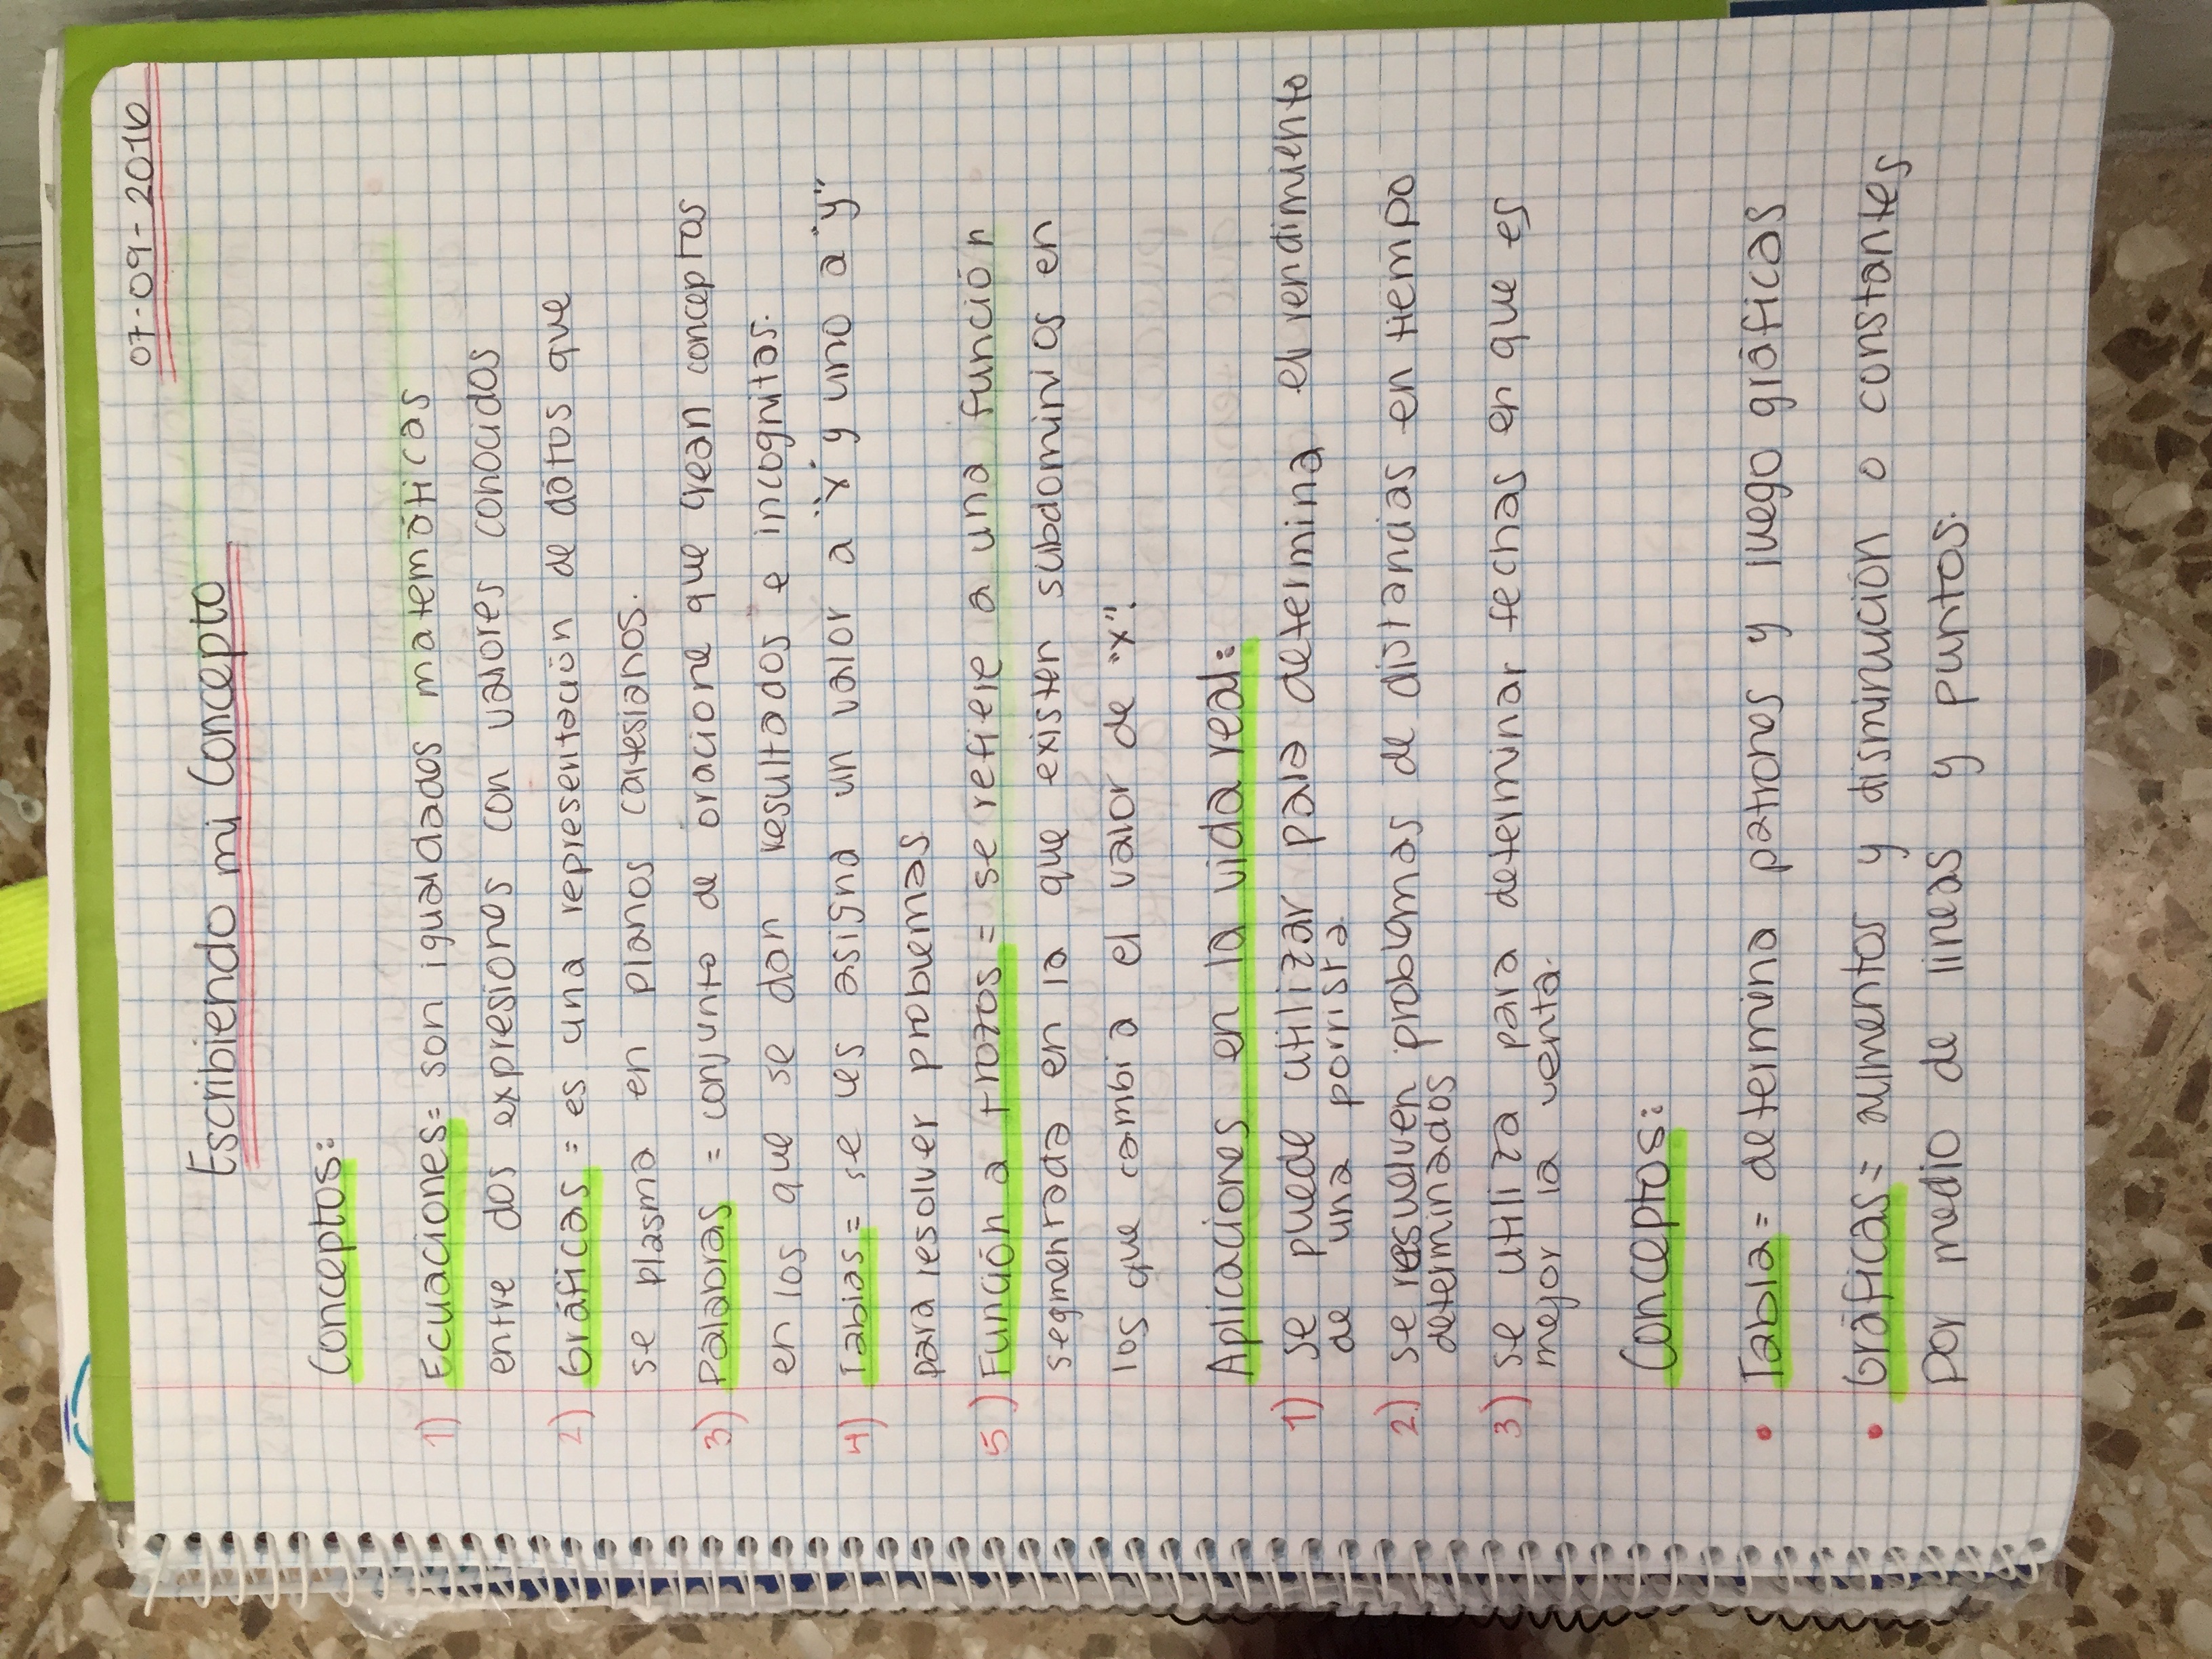 07-09-2016
Escribiendo mi Concepto
Conceptos:
1) Ecuaciones= son igualdades matemáticas
entre dos expresiones con valores conocidos
2) Gráficas = es una representación de datos que
se plasma en planos cartesianos.
3) Palabras = conjunto de oracione que crean conceptos
en los que se dan resultados e incognitas.
4) Tablas= se les asigna un valor a "x" y uno a "y"
para resolver problemas.
5) Función a trozos = se refiere a una función
segmentada en la que existen subdominios en
los que cambia el valor de "x".
Aplicaciones en la vida real:
1) se puede utilizar para determina el rendimiento
de una porrista.
2) se resuelven problamas de distancias en tiempo
determinados
3) se utiliza para determinar fechas en que es
mejor la venta.
Conceptos:
• Tabla= determina patrones y luego gráficas
• Gráficas= aumentos y disminución o constantes
por medio de lineas y puntos.